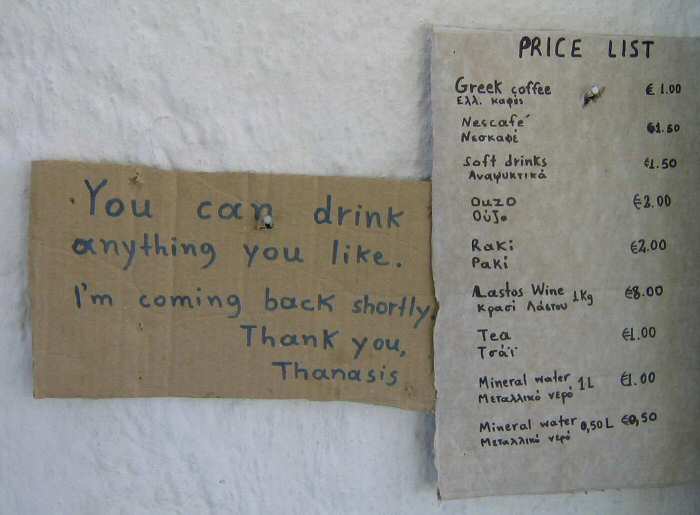 You can drink
anything you like.
I'm coming back shortly,
Thank you,
Thanasis
PRICE LIST
Greek coffee € 1.00
Ελλ. καφές
Nescafé €1.50
Νεσκαφέ
Soft drinks €1.50
Αναψυκτικά
Ouzo €2.00
Ούζο
Raki €2.00
Ρακί
Lastos Wine 1Kg €8.00
Κρασί Λάστου
Tea €1.00
Τσάϊ
Mineral water 1L €1.00
Μεταλλικό νερό
Mineral water 0,50L €0,50
Μεταλλικό νερό